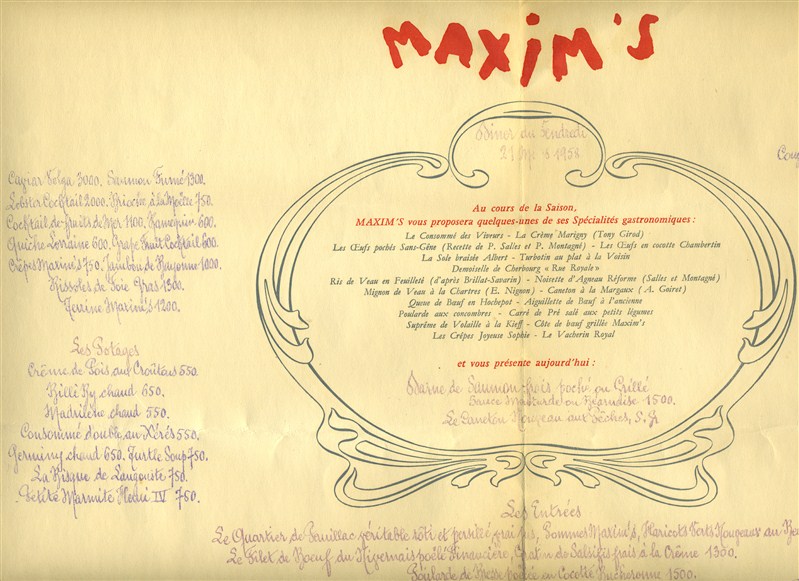 MAXIM'S
Diner du Vendredi
21 1958
Caviar Belga 3000. Saumon Fumé 1300.
Lobster Cocktail 2000. à la Moëlle 750.
Cocktail de fruits de Mer 1100. Ramequin 600.
Quiche Lorraine 600. Grape Fruit Cocktail 600.
Crêpes Maxim's 750. Jambon de Bayonne 1000.
Rissoles de Foie Gras 1300.
Terrine Maxim's 1200.
Les Potages
Crème de Pois aux Croûtons 550.
Billi By chaud 650.
Madrilène chaud 550.
Consommé double au Xérès 550.
Germiny chaud 650. Turtle Soup 750.
La Bisque de Langouste 750.
Petite Marmite Henri IV 750.
Au cours de la Saison,
MAXIM'S vous proposera quelques-unes de ses Spécialités gastronomiques :
Le Consommé des Viveurs - La Crème Marigny (Tony Girod)
Les Œufs pochés Sans-Gêne (Recette de P. Salles et P. Montagné) - Les Œufs en cocotte Chambertin
La Sole braisée Albert - Turbotin au plat à la Voisin
Demoiselle de Cherbourg « Rue Royale »
Ris de Veau en Feuilleté (d'après Brillat-Savarin) - Noisette d'Agneau Réforme (Salles et Montagné)
Mignon de Veau à la Chartres (E. Nignon) - Caneton à la Margaux (A. Goiret)
Queue de Bœuf en Hochepot - Aiguillette de Bœuf à l'ancienne
Poularde aux concombres - Carré de Pré salé aux petits légumes
Suprême de Volaille à la Kieff - Côte de bœuf grillée Maxim's
Les Crêpes Joyeuse Sophie - Le Vacherin Royal
et vous présente aujourd'hui :
Darne de Saumon frais poché ou Grillé
Sauce Moutarde ou Béarnaise 1500.
Le Caneton Nouveau aux Pêches, S.G
Les Entrées
Le Quartier de Pauillac véritable rôti et persillé Pommes Maxim's, Haricots Verts Nouveaux au
Le Filet de Boeuf du Nivernais poêlé Financière, Gratin de Salsifis frais à la Crème 1300.
Poularde de Bresse poêlée en Cocotte Bucheronne 1500.